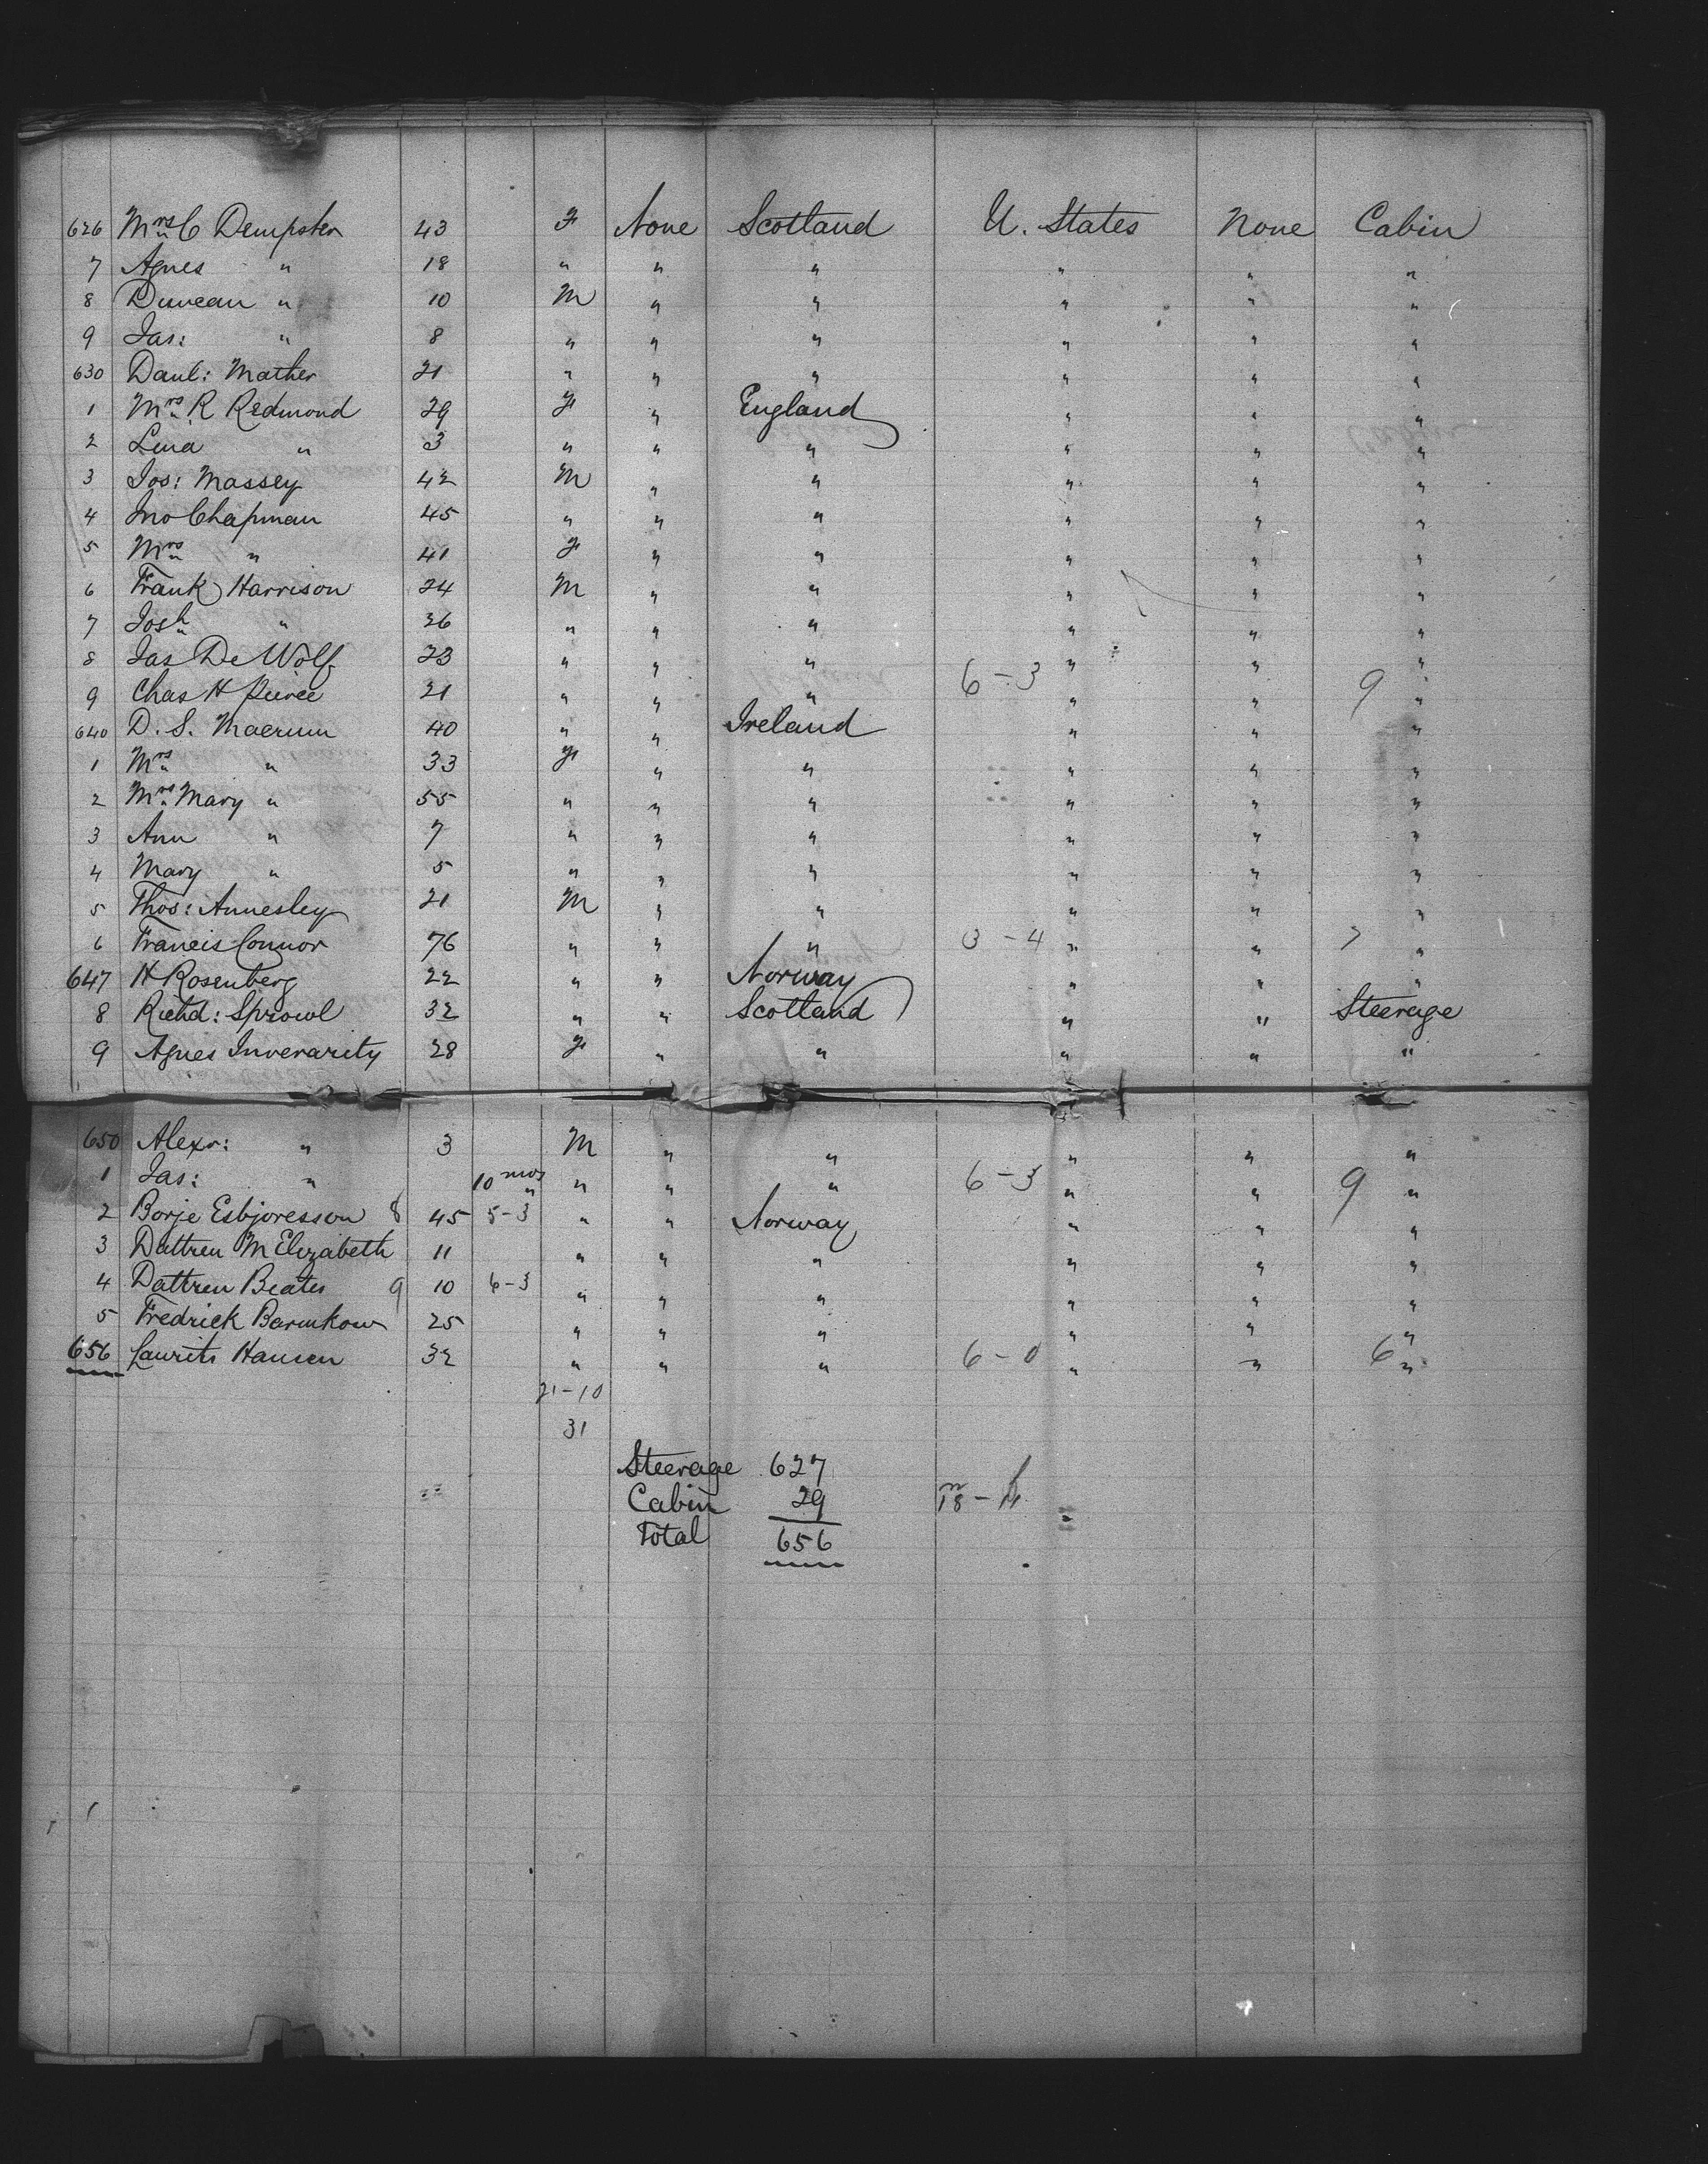 626 Mrs C Dempster 43 F None Scotland U. States None Cabin
7 Agnes " 18 " " " " " "
8 Duncan " 10 M " " " " "
9 Jas: " 8 " " " " " "
630 Danl: Mather 21 " " " " " "
1 Mrs R Redmond 29 F " England " " "
2 Lena " 3 " " " " " "
3 Jos: Massey 42 M " " " " "
4 Jno Chapman 45 " " " " " "
5 Mrs " 41 F " " " " "
6 Frank Harrison 24 M " " " " "
7 Josh " 26 " " " " " "
8 Jas De Wolf 23 " " " " " "
9 Chas H Peirce 21 " " " 6-3 " " 9 "
640 D. S. Maerum 40 " " Ireland " " "
1 Mrs " 33 F " " " " "
2 Mrs Mary " 55 " " " " " "
3 Ann " 7 " " " " " "
4 Mary " 5 " " " " " "
5 Thos: Annesley 21 M " " " " "
6 Francis Connor 76 " " " 3-4 " " 7 "
647 H Rosenberg 22 " " Norway " " "
8 Richd: Sprowl 32 " " Scotland " " Steerage
9 Agnes Inverarity 28 F " " " " "
650 Alexr: " 3 M " " " " "
1 Jas: " 10 mos " " " 6-3 " " 9 "
2 Borje Esbjoresson 8 45 5-3 " " Norway " " "
3 Dattren M Elizabeth 11 " " " " " "
4 Dattren Beates 9 10 6-3 " " " " " "
5 Fredrick Barmkow 25 " " " " " "
656 Laurits Hansen 32 " " " 6-0 " " 6 "
21-10
31
Steerage 627
Cabin 29 18-11
Total 656